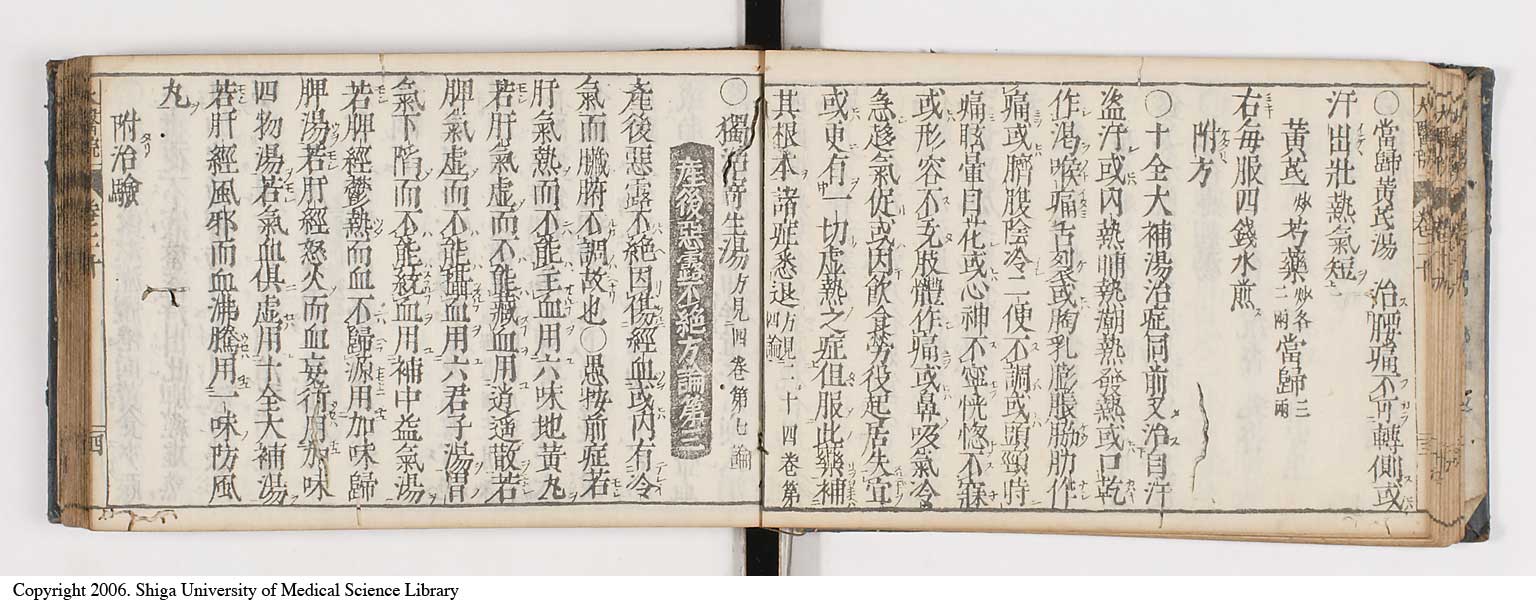 ○當歸黃芪湯 治腰痛不可轉側或
汗出壯熱氣短
黃芪炒 芍藥炒各二兩 當歸三兩
右每服四錢水煎
附方
○十全大補湯治症同前又治自汗
盜汗或內熱晡熱潮熱發熱或口乾
作渴喉痛舌裂或胸乳膨脹脇肋作
痛或臍腹陰冷二便不調或頭頸時
痛眩暈目花或心神不寧恍惚不寐
或形容不充肢體作痛或鼻吸氣冷
急趨氣促或因飲食勞役起居失宜
或更有一切虛熱之症但服此藥補
其根本諸症悉退方見二十四卷第四論
○獨活寄生湯方見四卷第七論
產後惡露不絕方論第三
產後惡露不絕因傷經血或內有冷
氣而臟腑不調故也○愚按前症若
肝氣熱而不能主血用六味地黃丸
若肝氣虛而不能藏血用逍遙散若
脾氣虛而不能攝血用六君子湯胃
氣下陷而不能統血用補中益氣湯
若脾經鬱熱而血不歸源用加味歸
脾湯若肝經怒火而血妄行用加味
四物湯若氣血俱虛用十全大補湯
若肝經風邪而血沸騰用一味防風
丸
附治驗
四
Copyright 2006. Shiga University of Medical Science Library